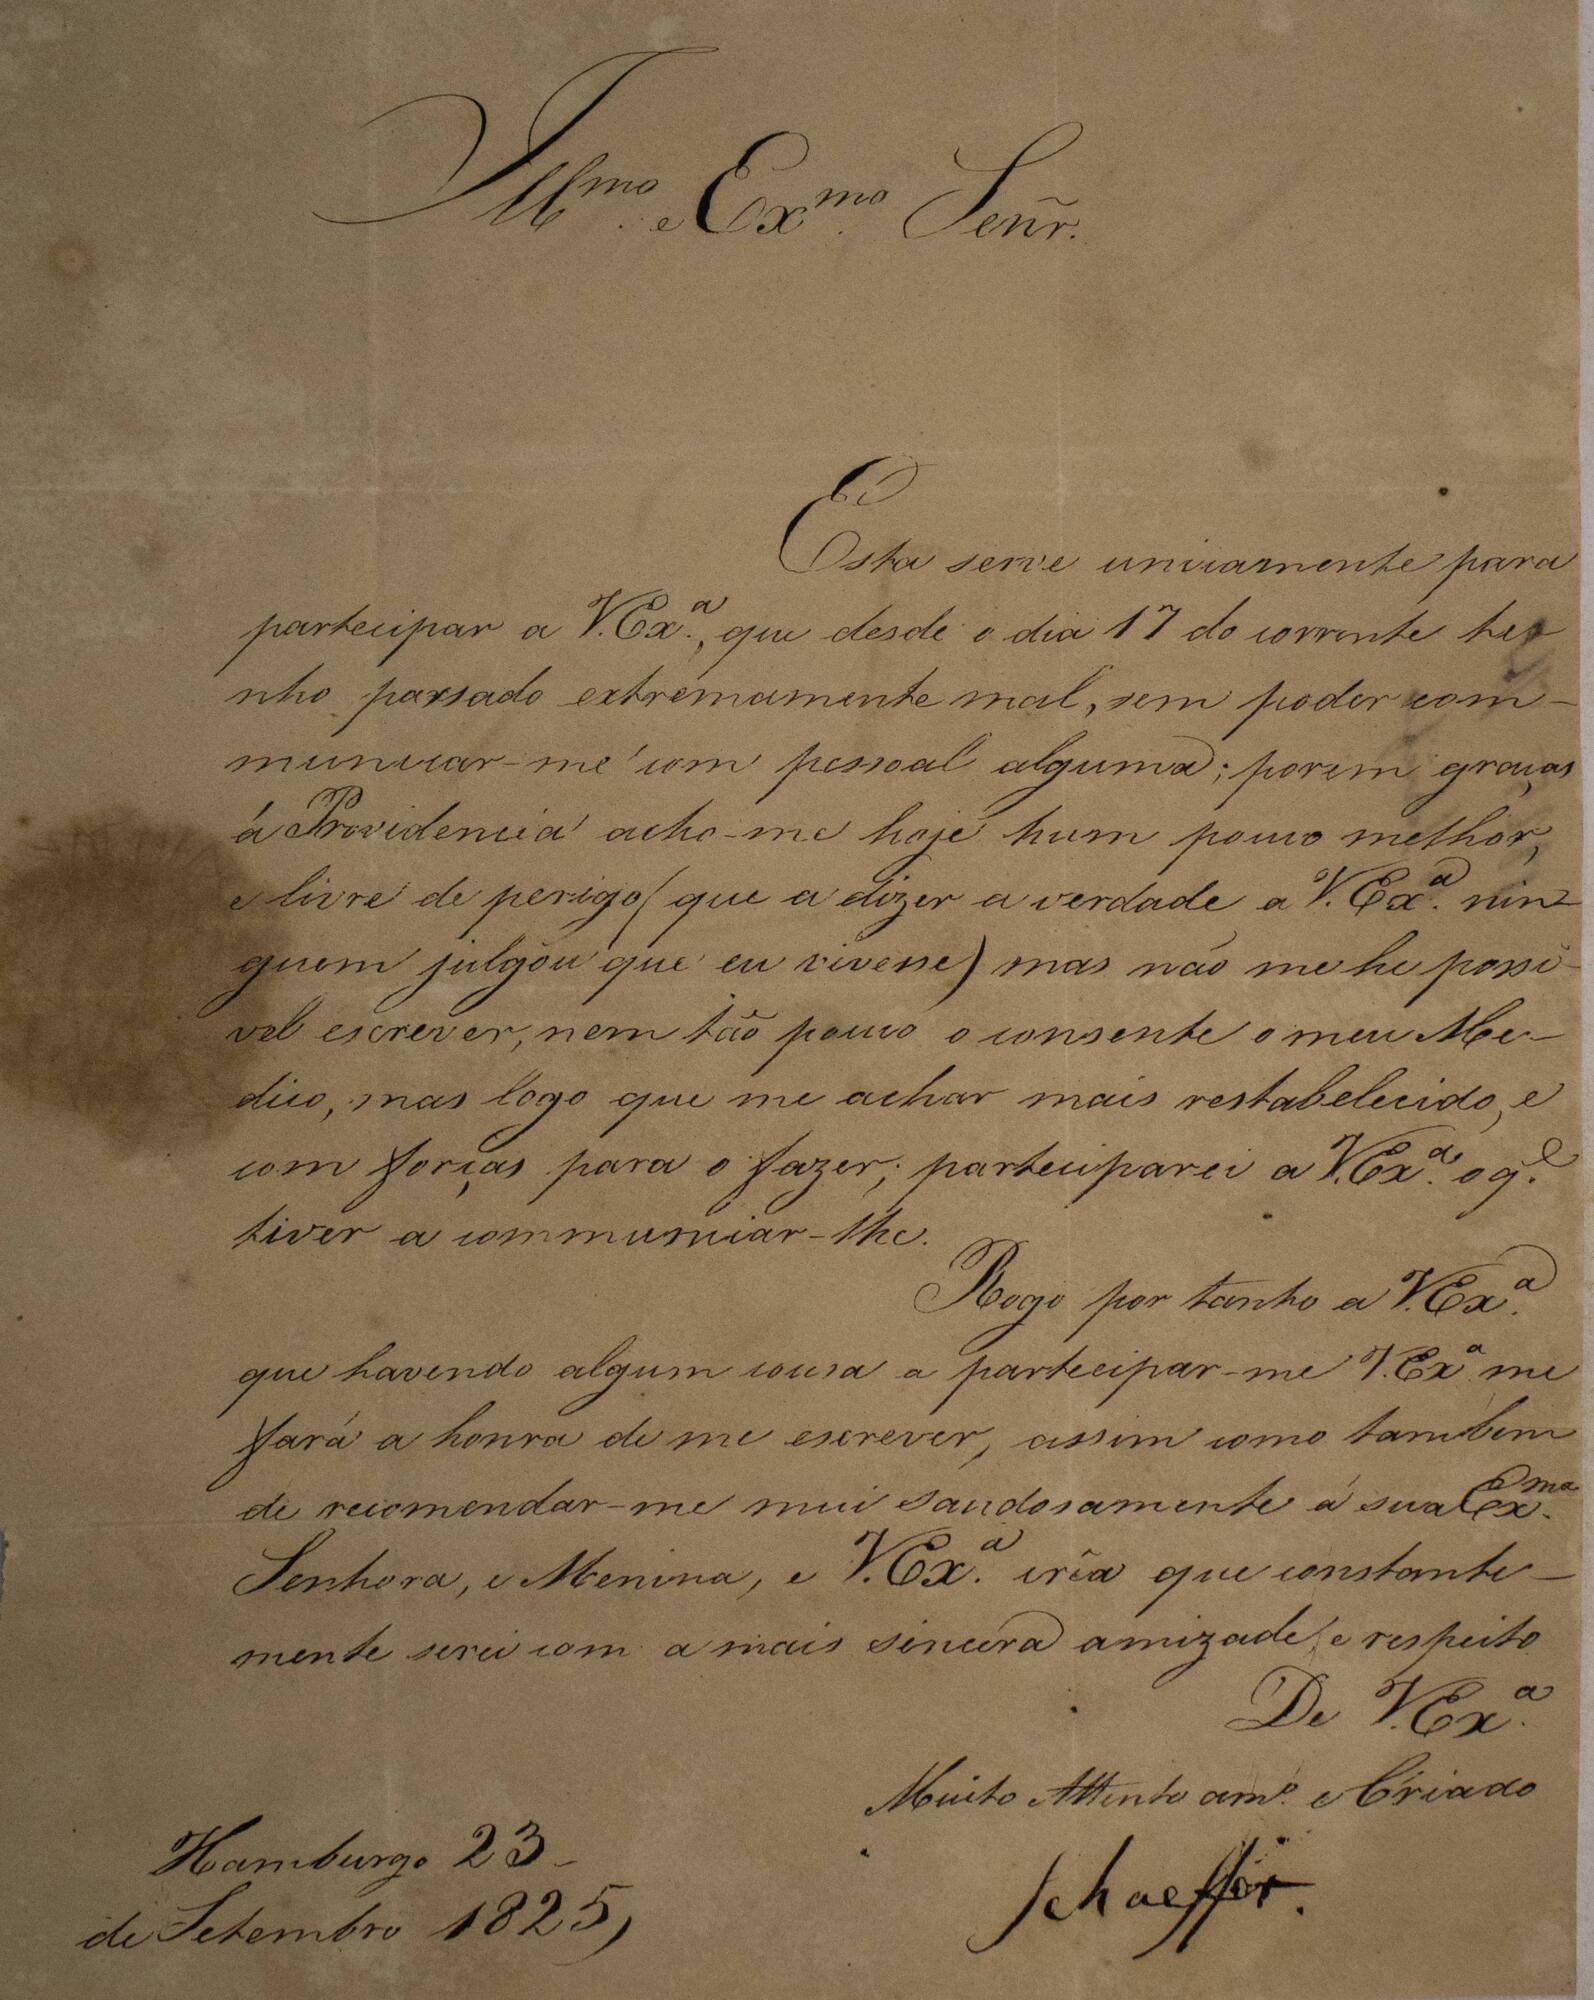 Illmo. e Exmo. Señr.
Esta serve unicamente para
partecipar a V.Exa., que desde o dia 17 do corrente te
nho passado extremamente mal, sem poder com-
municar-me com pessoal alguma; porem graças
á Providencia acho-me hoje hum pouco melhor,
e livre de perigo (que a dizer a verdade a V.Exa. nin-
guem julgõu que eu vivesse) mas não me he possi-
vel escrever, nem tão pouco o consente o meu Me-
dico, mas logo que me achar mais restabelecido, e
com forças para o fazer; parteciparei a V.Exa. o q.e
tiver a communicar-lhe.
Rogo por tanto a V.Exa.
que havendo algum cousa a partecipar-me V.Exa me
fará a honra de me escrever, assim como tambem
de recomendar-me mui saudosamente á sua Exma.
Senhora, e Menina, e V.Exa. crêa que constante-
mente serei com a mais sincera amizade, e respeito
De V.Exa.
Muito Attento amo. e Criado
Schaeffer.
Hamburgo 23-
de Setembro 1825,